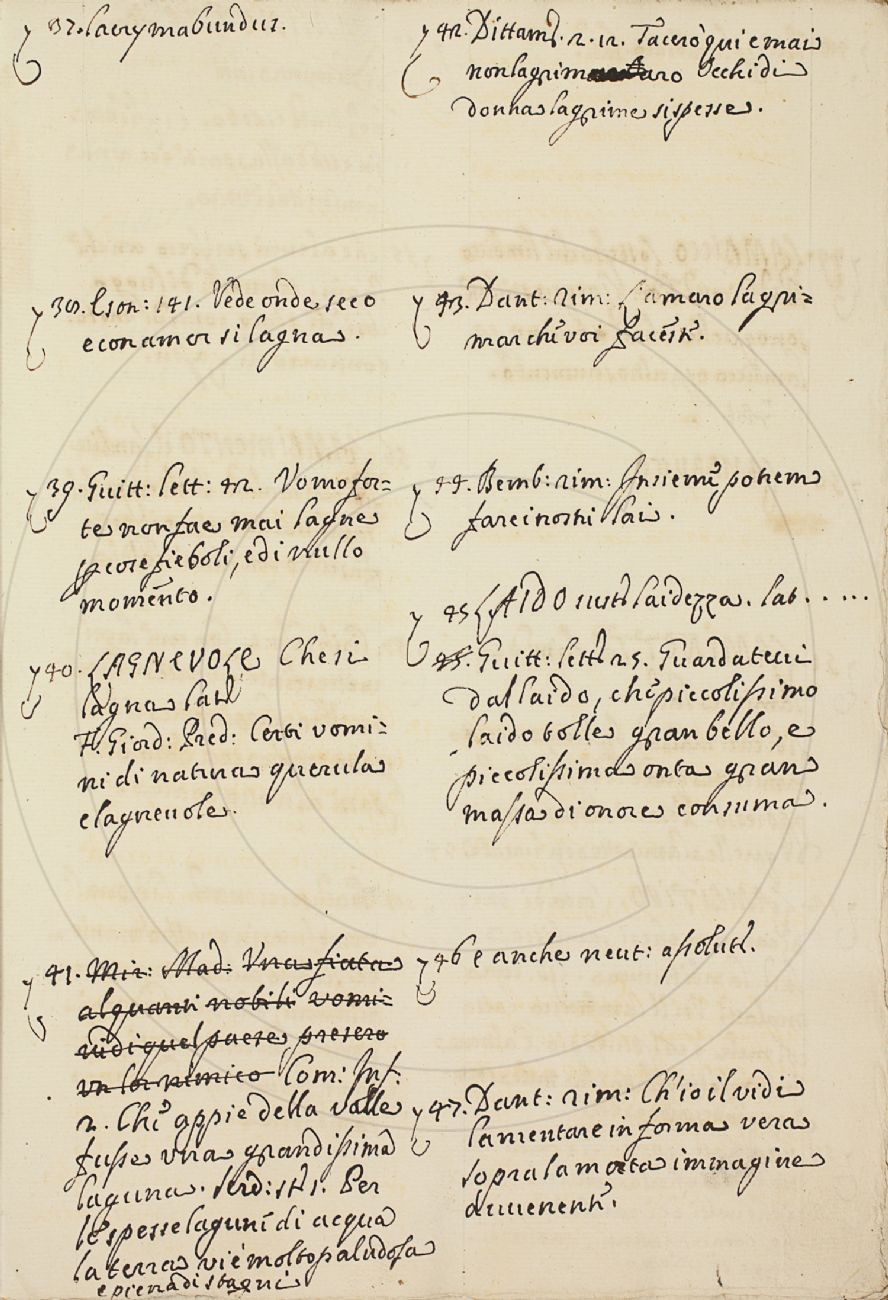 37. lacrymabundus.
38. Eson: 141. Vede onde seco
e con amor si lagna.
39. Guitt: lett: 42. Vomo for=
te non fae mai lagne
pcose fieboli, e di nullo
momento.
40. LAGNEVOLE Che si
lagna lat
F. Giord: Pred: Certi vomi=
ni di natura querula
e lagnevole.
41. Mir: Mad: Vna fiata
alquanti nobili vomi=
ni di quel paese presero
un lor nimico Com: Inf:
2. Che appie della valle
fusse vna grandissima
laguna. Per
le spesse lagune di acqua
la terra vi è molto paludosa
e piena di stagni
42. Dittam. 2. 12. Tacerò qui e mai
non lagrimaro occhi di
donna lagrime si spesse.
43. Dant: rim: L'amaro lagri=
mar che voi faceste.
44. Bemb: rim: Insieme potrem
fare i nostri lai.
45 LAIDO sust laidezza. lat. . . ...
45. Guitt: lett 25. Guardateui
dal laido, che piccolissimo
laido tolle gran bello, e
piccolissima onta gran
massa di onore consuma.
46 e anche neut: assolut.
47. Dant: rim: Ch'io il vidi
lamentare in forma vera
sopra la morta immagine
avvenente.